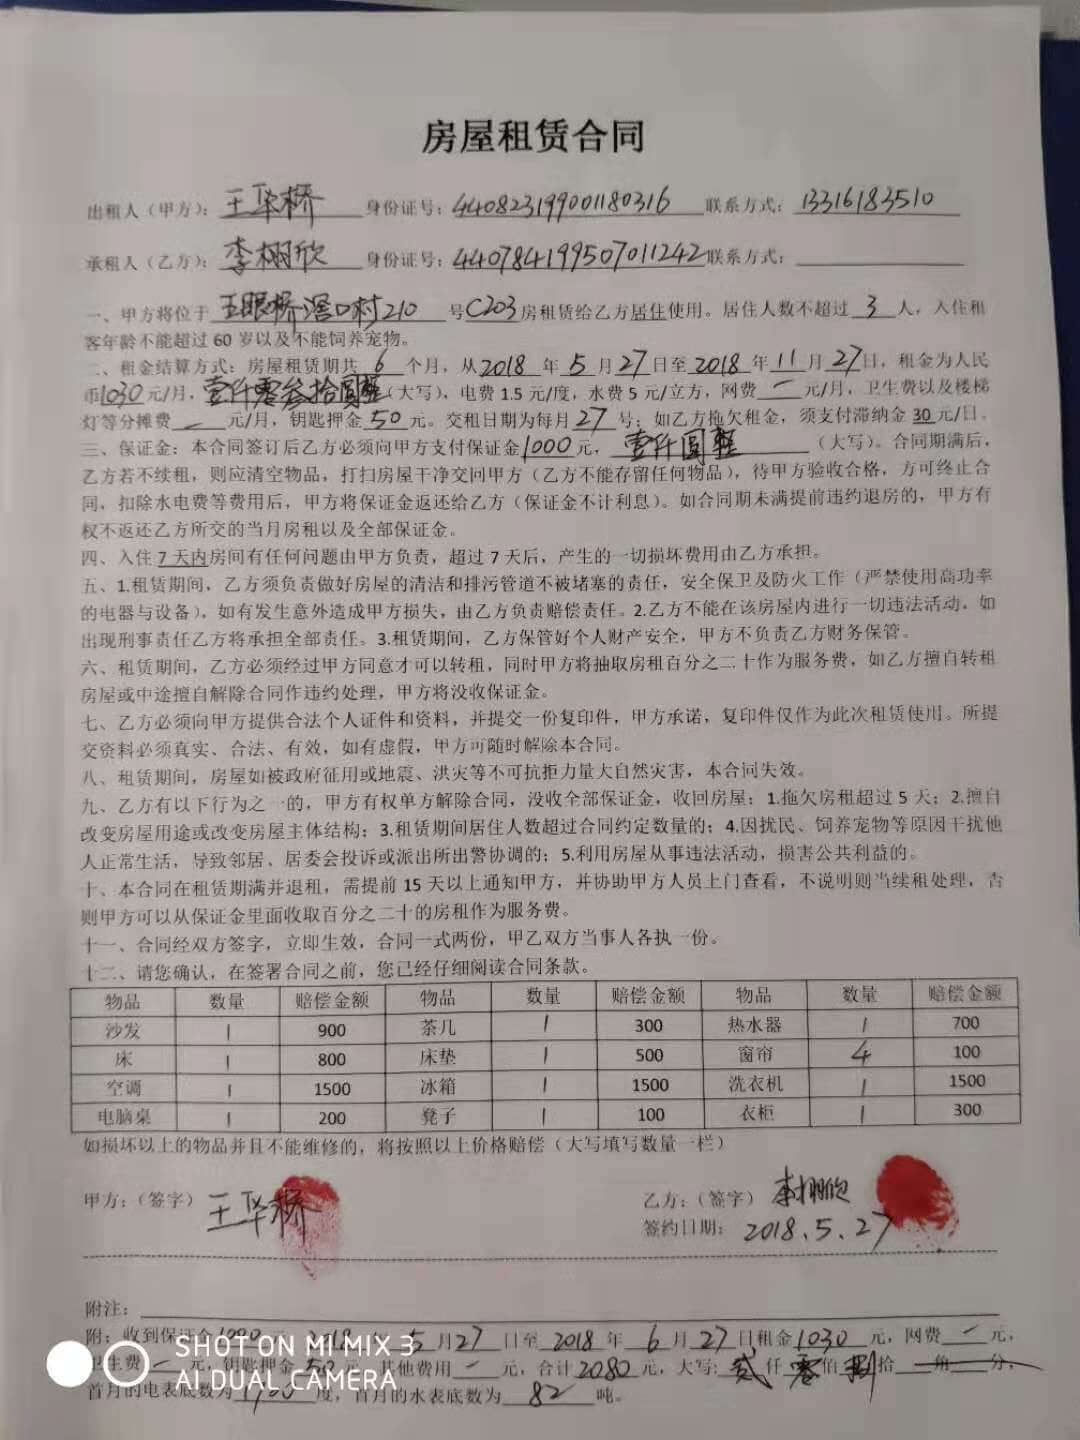 房屋租赁合同
出租人（甲方）：王华桥 身份证号：440823199001180316 联系方式：13316183510
承租人（乙方）：李栩欣 身份证号：440784199507011242 联系方式：
一、甲方将位于 王眼桥滘口村210 号C203房租赁给乙方居住使用。居住人数不超过 3 人，入住租
客年龄不能超过 60 岁以及不能饲养宠物。
二、租金结算方式：房屋租赁期共 6 个月，从2018 年 5 月27日至2018 年 11 月27日，租金为人民
币1030元/月，壹仟零叁拾圆整（大写），电费 1.5 元/度，水费 5 元/立方，网费 一 元/月，卫生费以及楼梯
灯等分摊费 一 元/月，钥匙押金 50 元。交租日期为每月 27 号；如乙方拖欠租金，须支付滞纳金 30 元/日。
三、保证金：本合同签订后乙方必须向甲方支付保证金1000元，壹仟圆整（大写）。合同期满后，
乙方若不续租，则应清空物品，打扫房屋干净交回甲方（乙方不能存留任何物品），待甲方验收合格，方可终止合
同，扣除水电费等费用后，甲方将保证金返还给乙方（保证金不计利息）。如合同期未满提前违约退房的，甲方有
权不返还乙方所交的当月房租以及全部保证金。
四、入住 7 天内房间有任何问题由甲方负责，超过 7 天后，产生的一切损坏费用由乙方承担。
五、1.租赁期间，乙方须负责做好房屋的清洁和排污管道不被堵塞的责任，安全保卫及防火工作（严禁使用高功率
的电器与设备），如有发生意外造成甲方损失，由乙方负责赔偿责任。2.乙方不能在该房屋内进行一切违法活动，如
出现刑事责任乙方将承担全部责任。3.租赁期间，乙方保管好个人财产安全，甲方不负责乙方财务保管。
六、租赁期间，乙方必须经过甲方同意才可以转租，同时甲方将抽取房租百分之二十作为服务费，如乙方擅自转租
房屋或中途擅自解除合同作违约处理，甲方将没收保证金。
七、乙方必须向甲方提供合法个人证件和资料，并提交一份复印件，甲方承诺，复印件仅作为此次租赁使用。所提
交资料必须真实、合法、有效，如有虚假，甲方可随时解除本合同。
八、租赁期间，房屋如被政府征用或地震、洪灾等不可抗拒力量大自然灾害，本合同失效。
九、乙方有以下行为之一的，甲方有权单方解除合同，没收全部保证金，收回房屋：1.拖欠房租超过 5 天；2.擅自
改变房屋用途或改变房屋主体结构；3.租赁期间居住人数超过合同约定数量的；4.因扰民、饲养宠物等原因干扰他
人正常生活，导致邻居、居委会投诉或派出所出警协调的；5.利用房屋从事违法活动，损害公共利益的。
十、本合同在租赁期满并退租，需提前 15 天以上通知甲方，并协助甲方人员上门查看，不说明则当续租处理，否
则甲方可以从保证金里面收取百分之二十的房租作为服务费。
十一、合同经双方签字，立即生效，合同一式两份，甲乙双方当事人各执一份。
十二、请您确认，在签署合同之前，您已经仔细阅读合同条款。
物品 数量 赔偿金额 物品 数量 赔偿金额 物品 数量 赔偿金额
沙发 1 900 茶几 1 300 热水器 1 700
床 1 800 床垫 1 500 窗帘 4 100
空调 1 1500 冰箱 1 1500 洗衣机 1 1500
电脑桌 1 200 凳子 1 100 衣柜 1 300
如损坏以上的物品并且不能维修的，将按照以上价格赔偿（大写填写数量一栏）
甲方：（签字）王华桥 乙方：（签字）李栩欣
签约日期： 2018.5.27
附注：
附：收到保证金1000 2018 年 5 月27 日至 2018 年 6 月 27 日租金1030 元，网费 一 元，
卫生费 一 元，钥匙押金 50 元，其他费用 一 元，合计2080元，大写：贰仟零佰捌拾 角 分，
首月的电表底数为 度，首月的水表底数为 82 吨。
SHOT ON MI MIX 3
AI DUAL CAMERA